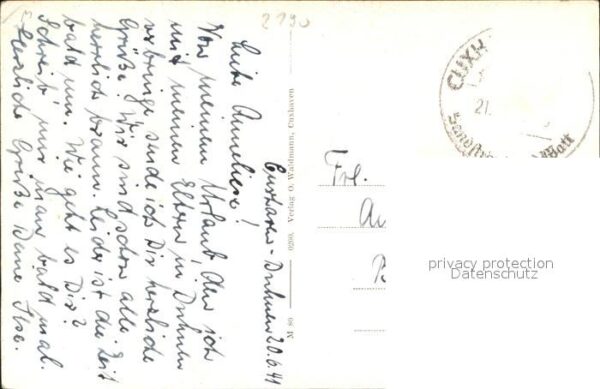 Cuxhaven-Duhnen 20.6.41
Liebe Anneliese!
Von meinem Urlaub, den ich
mit meinen Eltern in Duhnen
verbringe, sende ich Dir herzliche
Grüße. Wir sind schon alle
herrlich braun. Leider ist die Zeit
bald um. Wie geht es Dir?
Schreib mir man bald mal.
Herzliche Grüße Deine Ilse.
2190
M 80 0200, Verlag O. Waldmann, Cuxhaven
CUXH
21.
Watt
Frl.
privacy protection
Datenschutz